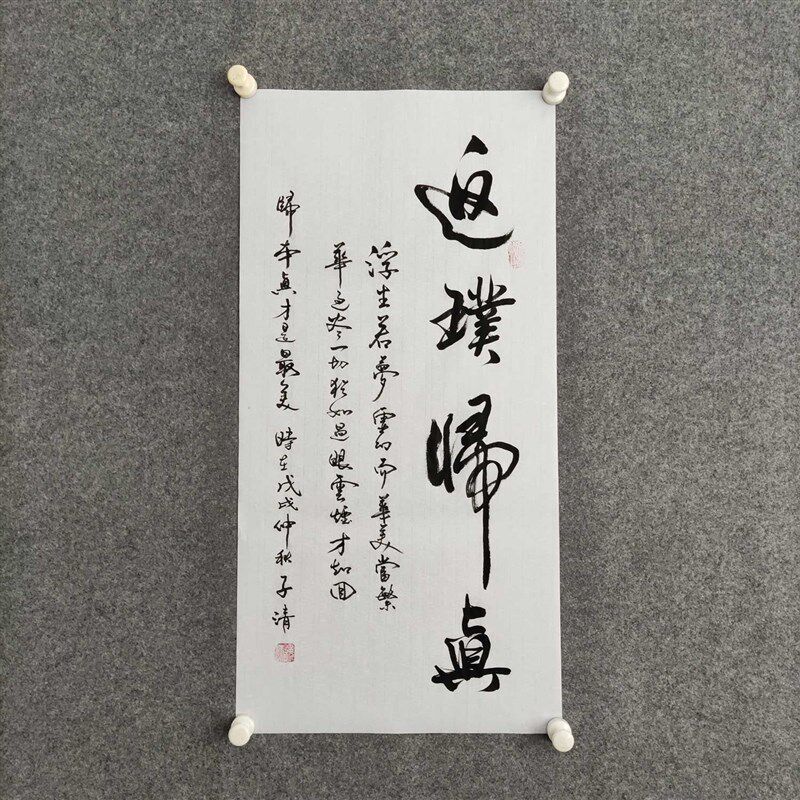 返璞歸真
浮生若夢雲幻而華美當繁
華過盡一切猶如過眼雲煙才知回
歸本真才是最美 時在戊戌仲秋子清